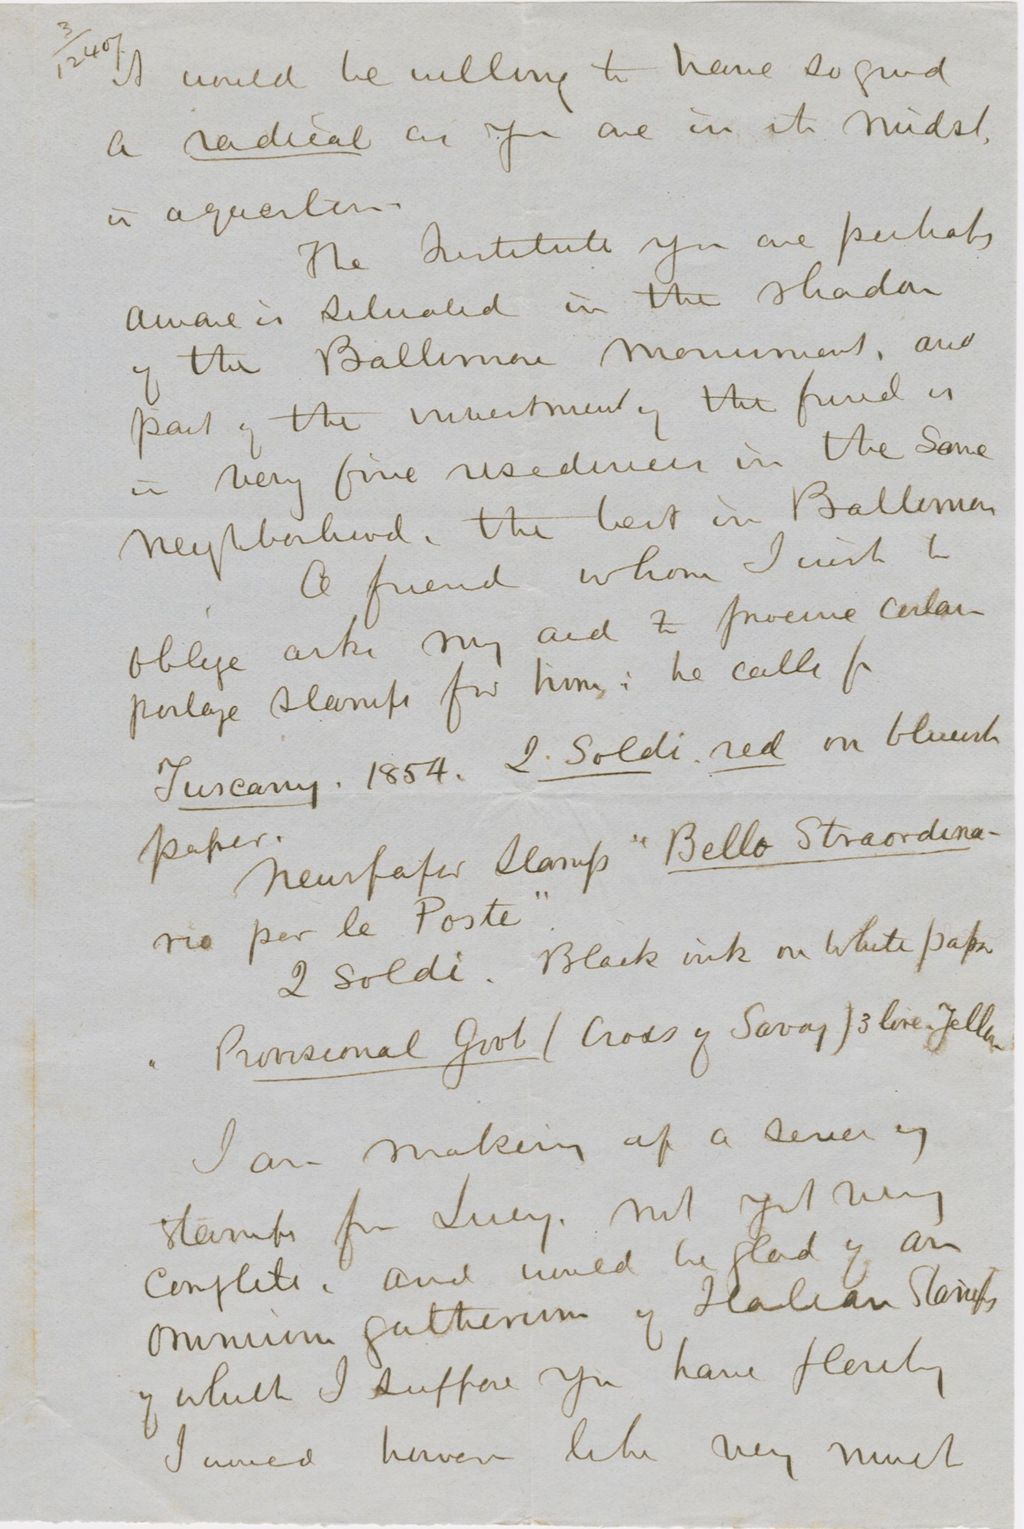 3/12407
it would be willing to have so good
a radical as you are in its midst,
is a question.
The Institute you are perhaps
aware is situated in the shadow
of the Baltimore monument, and
part of the investment of the fund is
in very fine residences in the same
neighborhood, the best in Baltimore
A friend whom I wish to
oblige asks my aid to procure certain
postage stamps for him; he calls for
Tuscany. 1854. 2. Soldi. red on blueish
paper.
Newspaper stamps "Bello Straordina-
rio per le Poste"
2 Soldi. Black ink on white paper
" Provisional Govt (Cross of Savoy) 3 lire. Yellow
I am making up a series of
stamps for Lucy, not yet very
complete, and would be glad of an
omnium gatherum of Italian Stamps
of which I suppose you have plenty
I would however like very much